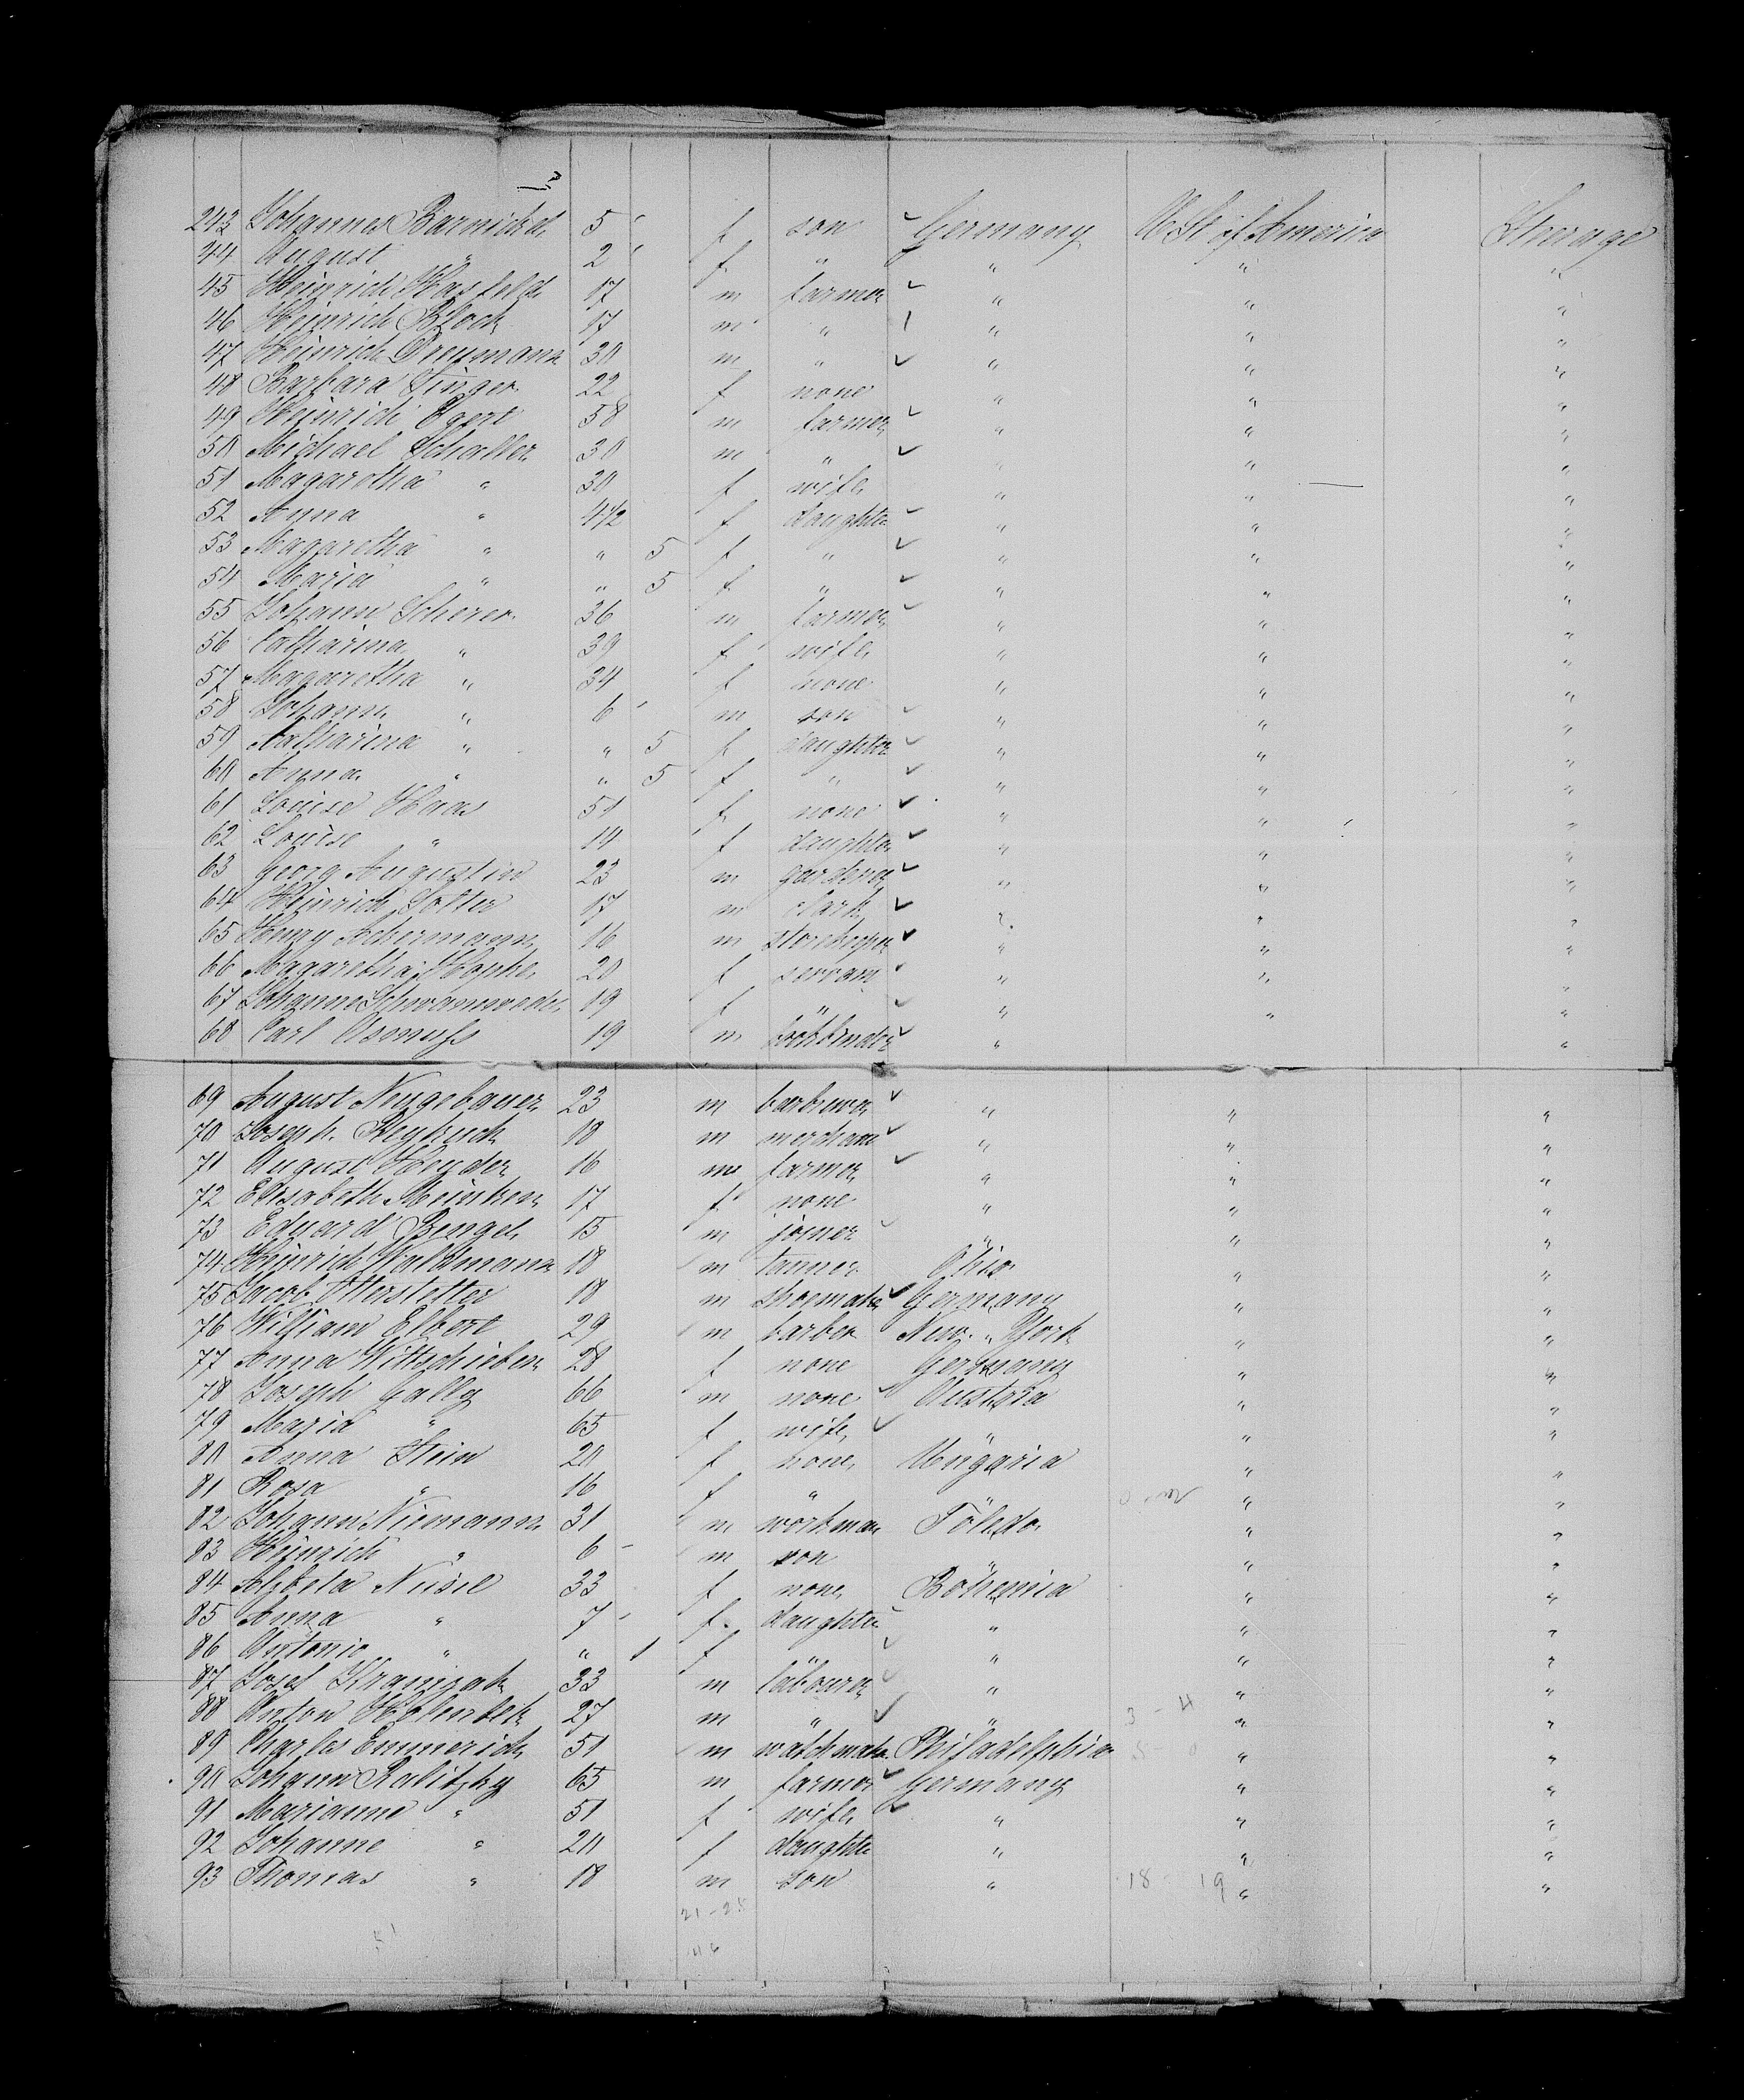 243 Johannes Barnickel 5 f son Germany U St of America Sterage
44 August " 2 f " " " "
45 Heinrich Hasfeld 17 m farmer " " "
46 Heinrich Block 17 m " " " "
47 Heinrich Dreymann 30 m " " " "
48 Barbara Singer 22 f none " " "
49 Heinrich Evert 58 m farmer " " "
50 Michael Schaller 30 m " " " "
51 Magaretha " 30 f wife " " "
52 Anna " 4 1/2 f daughter " " "
53 Magaretha " " 5 f " " " "
54 Maria " " 5 f " " " "
55 Johann Scherer 36 m farmer " " "
56 Catharina " 39 f wife " " "
57 Magaretha " 34 f none " " "
58 Johann " 6 m son " " "
59 Katharina " " 5 f daughter " " "
60 Anna " " 5 f " " " "
61 Louise Haas 51 f none " " "
62 Louise " 14 f daughter " " "
63 Georg Augustin 23 m gardener " " "
64 Heinrich Solter 17 m clark " " "
65 Henry Ackermann 16 m storekeper " " "
66 Magaretha Hophe 20 f servant " " "
67 Johanne Schwanewede 19 f " " " "
68 Carl Asmuss 19 m " " "
69 August Neugebauer 23 m " " "
70 Joseph 18 m merchant " " "
71 August 16 m farmer " " "
72 Elisabeth Meinken 17 f none " " "
73 Eduard Bengel 15 m joiner " " "
74 Heinrich Waldmann 18 m tanner Ohio " "
75 Jacob Otterstetter 18 m shoemaker Germany " "
76 William Elbert 29 m barber New York " "
77 Anna Wittschieben 28 f none Germany " "
78 Joseph Gally 66 m none Austria " "
79 Maria " 65 f wife " " "
80 Anna Stein 20 f none Ungaria " "
81 Rosa " 16 f " " "
82 Johann Niemann 31 m workman Toledo " "
83 Heinrich " 6 m son " " "
84 Alzbeta 33 f none Bohemia " "
85 Anna " 7 f daughter " " "
86 Antonie " " 1 f " " " "
87 Josef 33 m labourer " " "
88 Anton 27 m " " 3 - 4 " "
89 Charles Emmerich 51 m watchmaker Philadelphia " "
90 Johann Kalitzky 65 m farmer Germany " "
91 Marianne " 51 f wife " " "
92 Johanne " 20 f daughter " " "
93 Thomas " 18 m son " 18 - 19 " "
21 - 25
46
51